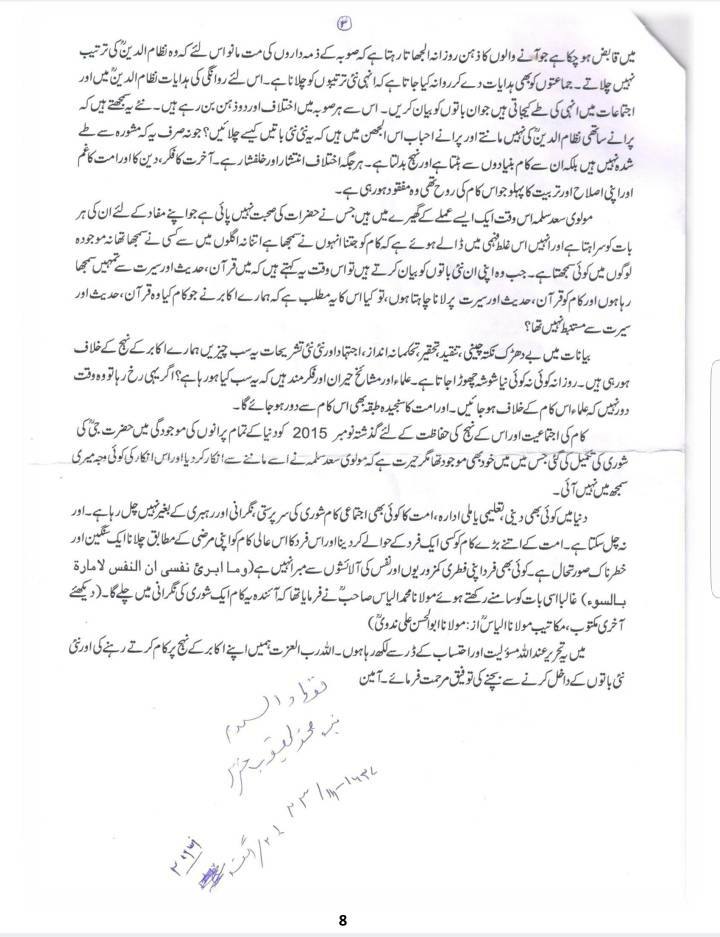 ۳
میں قابض ہو چکا ہے جو آنے والوں کا ذہن روزانہ الجھاتا رہتا ہے کہ صوبہ کے ذمہ داروں کی مت مانو اس لئے کہ وہ نظام الدینؒ کی ترتیب
نہیں چلاتے۔ جماعتوں کو بھی ہدایات دے کر روانہ کیا جاتا ہے کہ انہی نئی ترتیبوں کو چلانا ہے۔ اس لئے روانگی کی ہدایات نظام الدینؒ میں اور
اجتماعات میں انہی کی طے کیجاتی ہیں جو ان باتوں کو بیان کریں۔ اس سے ہر صوبہ میں اختلاف اور دو ذہن بن رہے ہیں۔ نئے یہ سمجھتے ہیں کہ
پرانے ساتھی نظام الدینؒ کی نہیں مانتے اور پرانے احباب اس الجھن میں ہیں کہ یہ نئی نئی باتیں کیسے چلائیں؟ جو نہ صرف یہ کہ مشورہ سے طے
شدہ نہیں ہیں بلکہ ان سے کام بنیادوں سے ہٹتا ہے اور نہج بدلتا ہے۔ ہر جگہ اختلاف انتشار اور خلفشار ہے۔ آخرت کا فکر، دین کا اور امت کا غم
اور اپنی اصلاح اور تربیت کا پہلو جو اس کام کی روح تھی وہ مفقود ہو رہی ہے۔
مولوی سعد سلمہ اس وقت ایک ایسے عملے کے گھیرے میں ہیں جس نے حضرات کی صحبت نہیں پائی ہے جو اپنے مفاد کے لئے ان کی ہر
بات کو سراہتا ہے اور انہیں اس غلط فہمی میں ڈالے ہوئے ہے کہ کام کو جتنا انہوں نے سمجھا ہے اتنا نہ اگلوں میں سے کسی نے سمجھا تھا نہ موجودہ
لوگوں میں کوئی سمجھتا ہے۔ جب وہ اپنی ان نئی باتوں کو بیان کرتے ہیں تو اس وقت یہ کہتے ہیں کہ میں قرآن، حدیث اور سیرت سے تمہیں سمجھا
رہا ہوں اور کام کو قرآن، حدیث اور سیرت پر لانا چاہتا ہوں، تو کیا اس کا یہ مطلب ہے کہ ہمارے اکابر نے جو کام کیا وہ قرآن، حدیث اور
سیرت سے مستنبط نہیں تھا؟
بیانات میں بے دھڑک نکتہ چینی، تنقید، تحقیر، تحکمانہ انداز، اجتہاد اور نئی نئی تشریحات یہ سب چیزیں ہمارے اکابر کے نہج کے خلاف
ہو رہی ہیں۔ روزانہ کوئی نہ کوئی نیا شوشہ چھوڑا جاتا ہے۔ علماء اور مشائخ حیران اور فکر مند ہیں کہ یہ سب کیا ہو رہا ہے؟ اگر یہی رخ رہا تو وہ وقت
دور نہیں کہ علماء اس کام کے خلاف ہو جائیں۔ اور امت کا سنجیدہ طبقہ بھی اس کام سے دور ہو جائے گا۔
کام کی اجتماعیت اور اس کے نہج کی حفاظت کے لئے گذشتہ نومبر 2015 کو دنیا کے تمام پرانوں کی موجودگی میں حضرت جیؒ کی
شوری کی تکمیل کی گئی جس میں میں خود بھی موجود تھا مگر حیرت ہے کہ مولوی سعد سلمہ نے اسے ماننے سے انکار کر دیا! اور اس انکار کی کوئی وجہ میری
سمجھ میں نہیں آئی۔
دنیا میں کوئی بھی دینی، تعلیمی یا ملی ادارہ، امت کا کوئی بھی اجتماعی کام شوری کی سرپرستی، نگرانی اور رہبری کے بغیر نہیں چل رہا ہے۔ اور
نہ چل سکتا ہے۔ امت کے اتنے بڑے کام کو کسی ایک فرد کے حوالے کر دینا اور اس فرد کا اس عالی کام کو اپنی مرضی کے مطابق چلانا ایک سنگین اور
خطرناک صورتحال ہے۔ کوئی بھی فرد اپنی فطری کمزوریوں اور نفس کی آلائشوں سے مبرا نہیں ہے (وما ابرئ نفسی ان النفس لامارة
بالسوء) غالبا اسی بات کو سامنے رکھتے ہوئے مولانا محمد الیاس صاحبؒ نے فرمایا تھا کہ آئندہ یہ کام ایک شوری کی نگرانی میں چلے گا۔ (دیکھئے
آخری مکتوب، مکاتیب مولانا الیاسؒ از: مولانا ابوالحسن علی ندویؒ)
میں یہ تحریر عند اللہ مسؤلیت اور احتساب کے ڈر سے لکھ رہا ہوں۔ اللہ رب العزت ہمیں اپنے اکابر کے نہج پر کام کرتے رہنے کی اور نئی
نئی باتوں کے داخل کرنے سے بچنے کی توفیق مرحمت فرمائے۔ آمین
فقط والسلام
محمد یعقوب
8